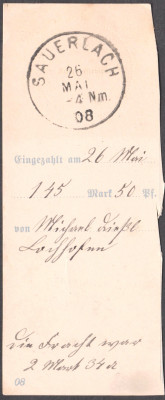 SAUERLACH
26
MAI
-4 Nm.
08
Eingezahlt am 26 Mai
145 Mark 50 Pf.
von Michael
Lochhofen
die Fracht war
2 Mark 34 d
08